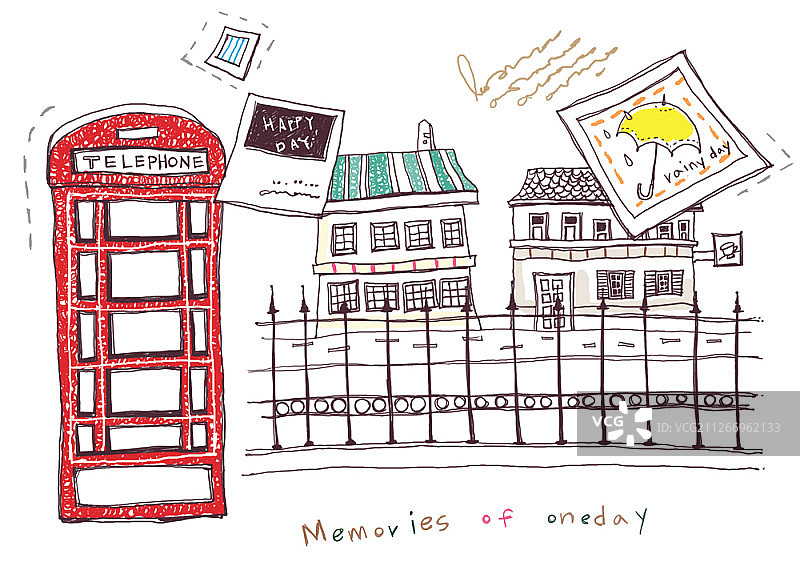 TELEPHONE
HAPPY
DAY!
rainy day
VCG
ID: VCG211266962133
Memories of oneday